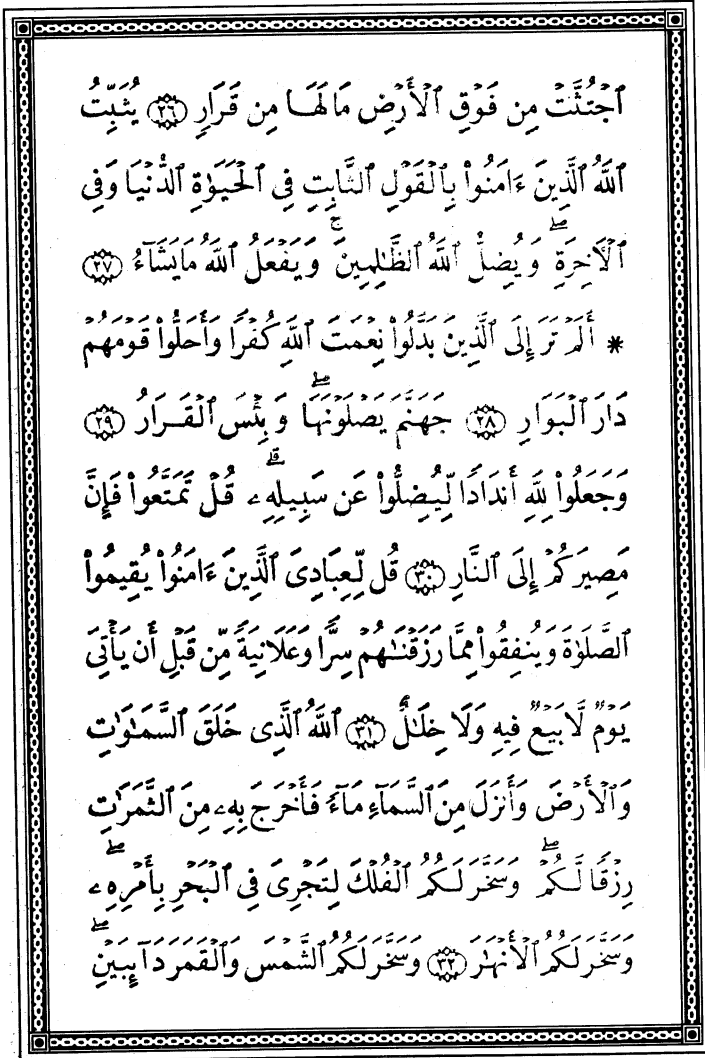 ٱجْتُثَّتْ مِن فَوْقِ ٱلْأَرْضِ مَا لَهَا مِن قَرَارٍ ﴿٢٦﴾ يُثَبِّتُ
ٱللَّهُ ٱلَّذِينَ ءَامَنُوا۟ بِٱلْقَوْلِ ٱلثَّابِتِ فِى ٱلْحَيَوٰةِ ٱلدُّنْيَا وَفِى
ٱلْأَخِرَةِ ۖ وَيُضِلُّ ٱللَّهُ ٱلظَّـٰلِمِينَ ۚ وَيَفْعَلُ ٱللَّهُ مَا يَشَآءُ ﴿٢٧﴾
* أَلَمْ تَرَ إِلَى ٱلَّذِينَ بَدَّلُوا۟ نِعْمَتَ ٱللَّهِ كُفْرًا وَأَحَلُّوا۟ قَوْمَهُمْ
دَارَ ٱلْبَوَارِ ﴿٢٨﴾ جَهَنَّمَ يَصْلَوْنَهَا ۖ وَبِئْسَ ٱلْقَرَارُ ﴿٢٩﴾
وَجَعَلُوا۟ لِلَّهِ أَندَادًا لِّيُضِلُّوا۟ عَن سَبِيلِهِۦ ۗ قُلْ تَمَتَّعُوا۟ فَإِنَّ
مَصِيرَكُمْ إِلَى ٱلنَّارِ ﴿٣٠﴾ قُل لِّعِبَادِىَ ٱلَّذِينَ ءَامَنُوا۟ يُقِيمُوا۟
ٱلصَّلَوٰةَ وَيُنفِقُوا۟ مِمَّا رَزَقْنَـٰهُمْ سِرًّا وَعَلَانِيَةً مِّن قَبْلِ أَن يَأْتِىَ
يَوْمٌ لَّا بَيْعٌ فِيهِ وَلَا خِلَـٰلٌ ﴿٣١﴾ ٱللَّهُ ٱلَّذِى خَلَقَ ٱلسَّمَـٰوَٰتِ
وَٱلْأَرْضَ وَأَنزَلَ مِنَ ٱلسَّمَآءِ مَآءً فَأَخْرَجَ بِهِۦ مِنَ ٱلثَّمَرَٰتِ
رِزْقًا لَّكُمْ ۖ وَسَخَّرَ لَكُمُ ٱلْفُلْكَ لِتَجْرِىَ فِى ٱلْبَحْرِ بِأَمْرِهِۦ ۖ
وَسَخَّرَ لَكُمُ ٱلْأَنْهَـٰرَ ﴿٣٢﴾ وَسَخَّرَ لَكُمُ ٱلشَّمْسَ وَٱلْقَمَرَ دَآئِبَيْنِ ۖ